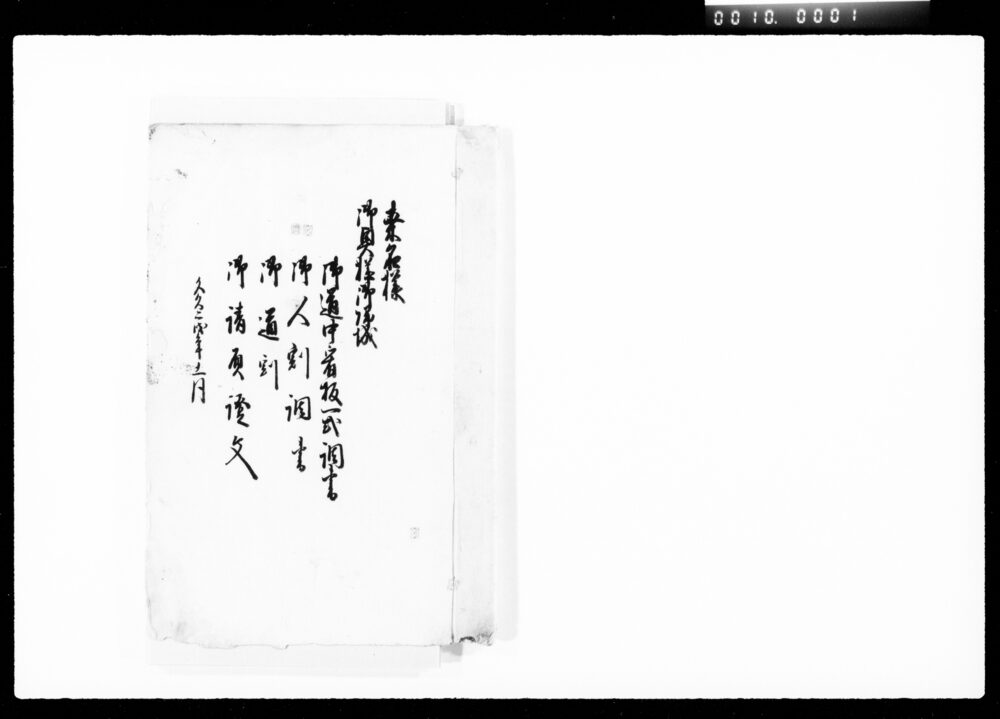 0010.0001
桑名様
御奥様御帰城
御道中宿取一式調書
御人割調書
御道割
御請負證文
文久二戌年十一月